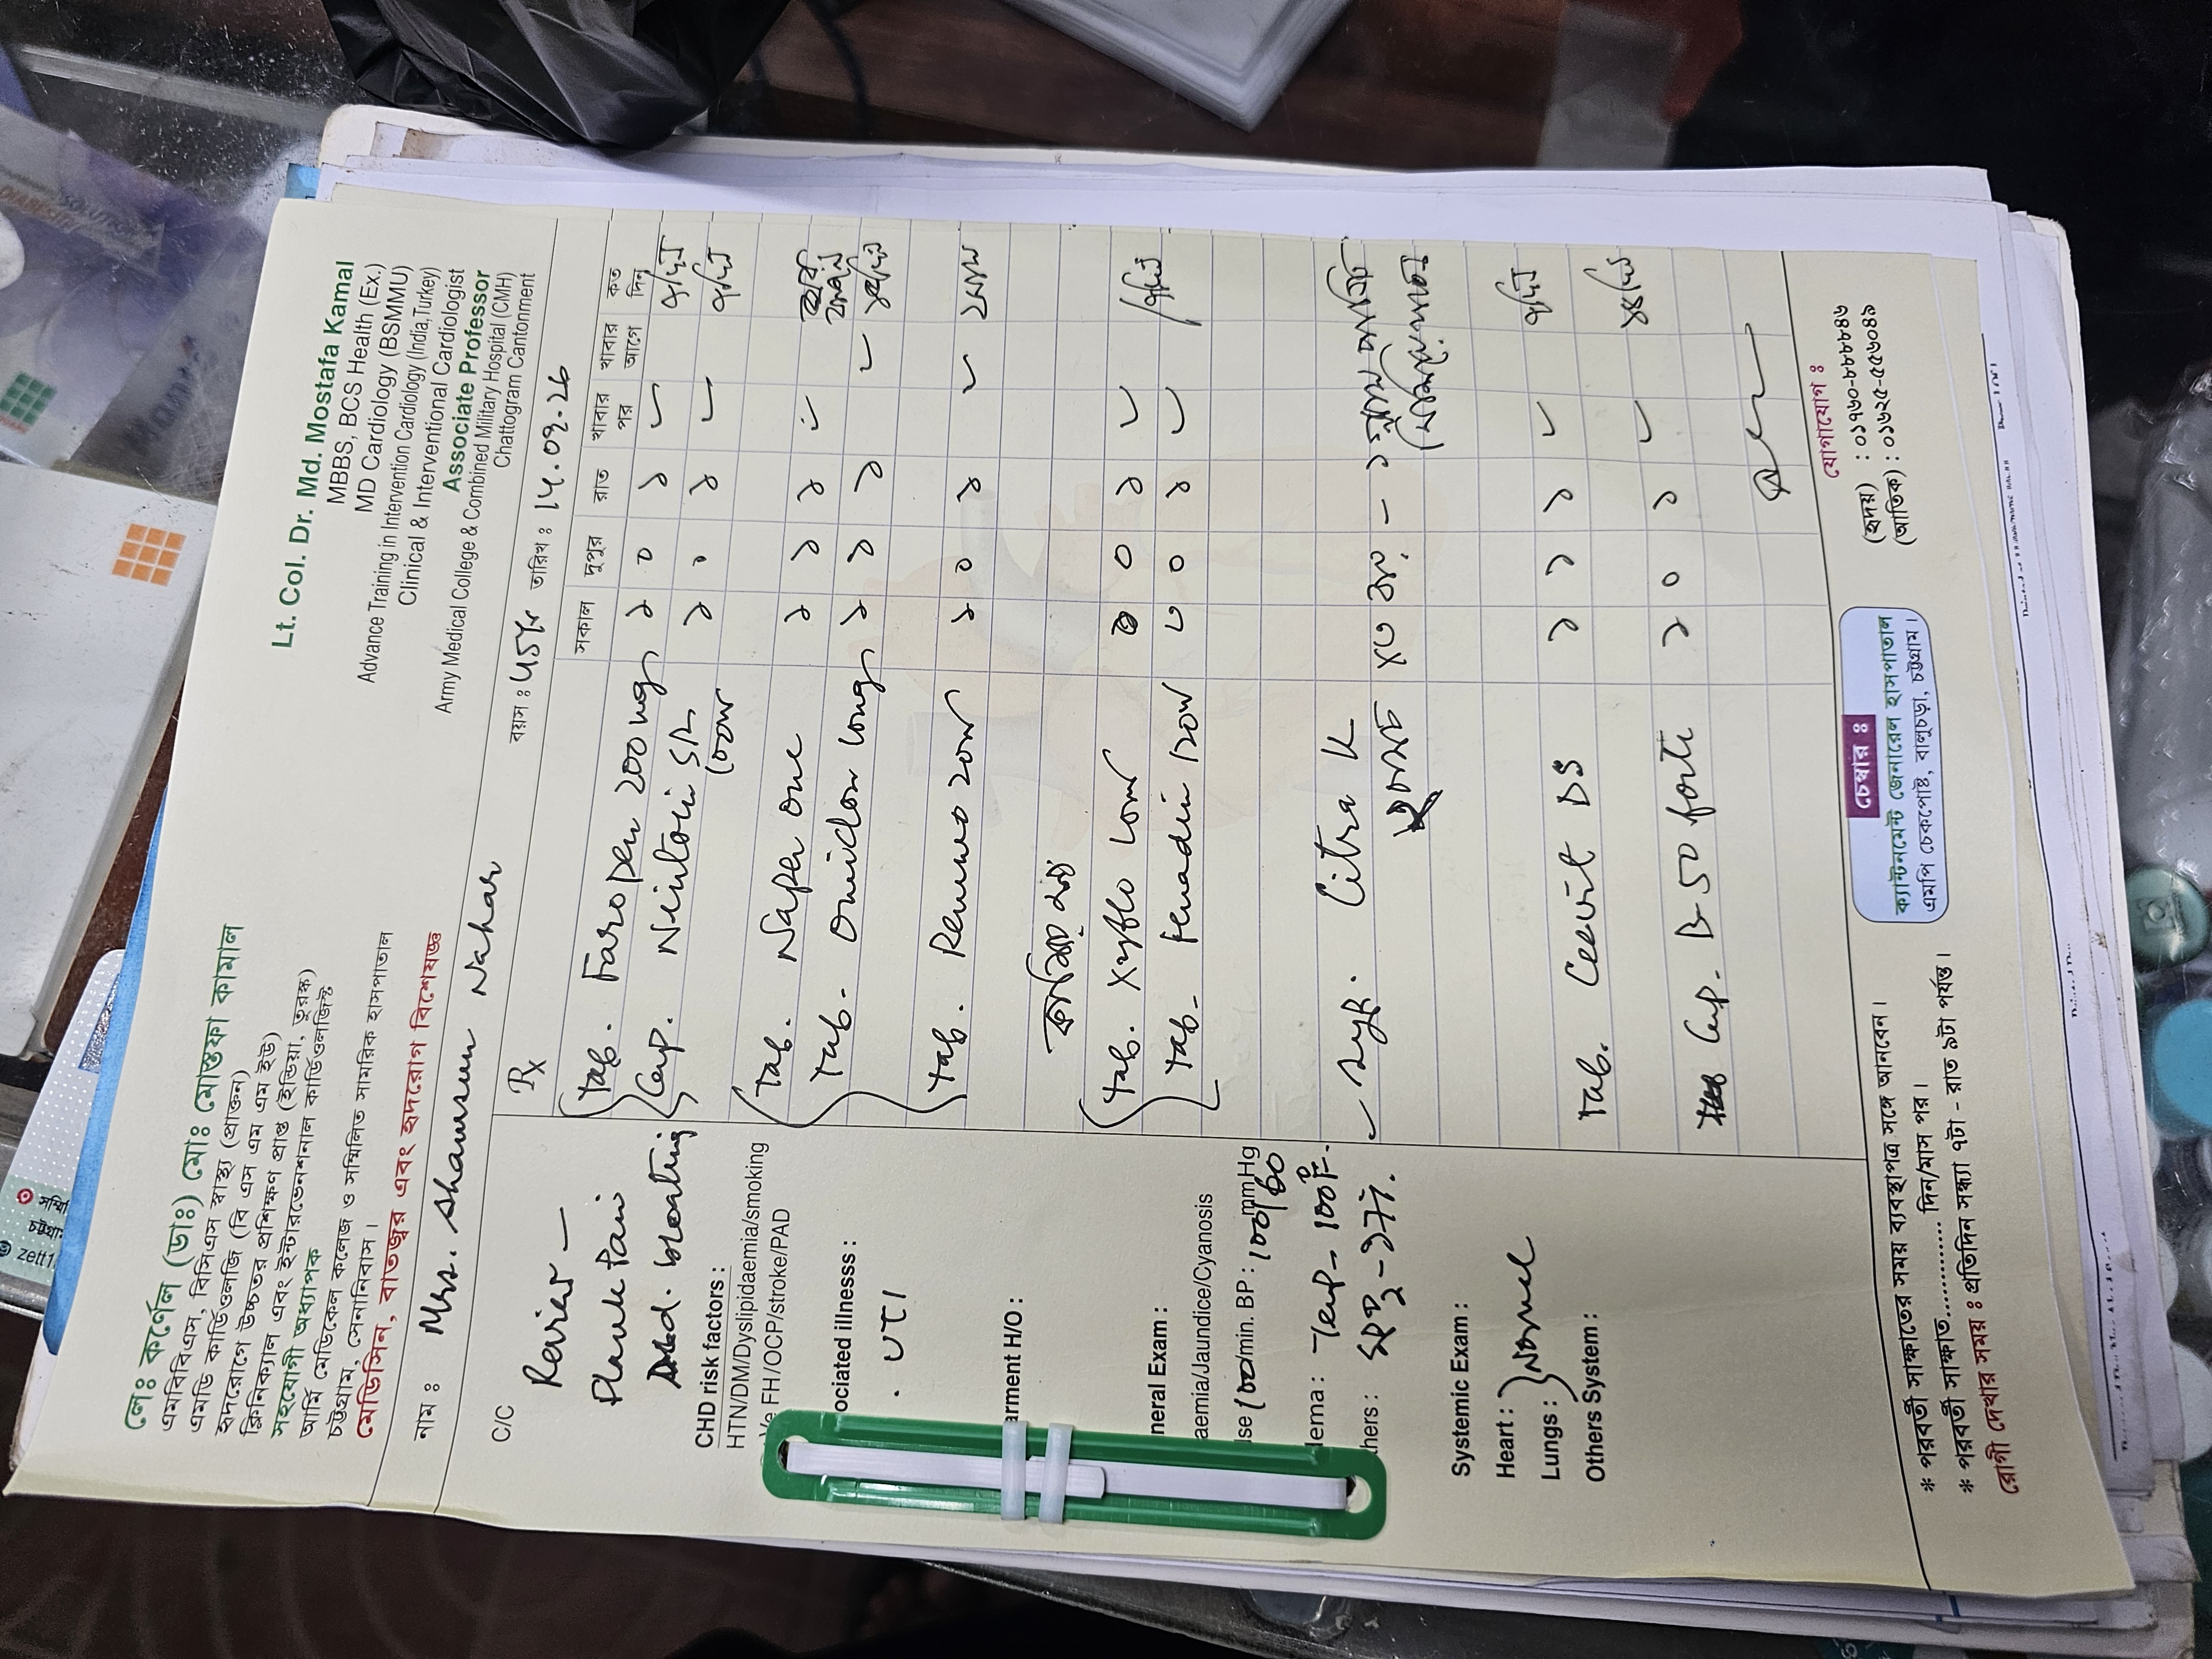 লেঃ কর্ণেল (ডাঃ) মোঃ মোস্তফা কামাল
এমবিবিএস, বিসিএস স্বাস্থ্য (প্রাক্তন)
এমডি কার্ডিওলজি (বি এস এম এম ইউ)
হৃদরোগে উচ্চতর প্রশিক্ষণ প্রাপ্ত (ইন্ডিয়া, তুরস্ক)
ক্লিনিক্যাল এবং ইন্টারভেনশনাল কার্ডিওলজিস্ট
সহযোগী অধ্যাপক
আর্মি মেডিকেল কলেজ ও সম্মিলিত সামরিক হাসপাতাল
চট্টগ্রাম, সেনানিবাস।
মেডিসিন, বাতজ্বর এবং হৃদরোগ বিশেষজ্ঞ
Lt. Col. Dr. Md. Mostafa Kamal
MBBS, BCS Health (Ex.)
MD Cardiology (BSMMU)
Advance Training in Intervention Cardiology (India,Turkey)
Clinical & Interventional Cardiologist
Associate Professor
Army Medical College & Combined Military Hospital (CMH)
Chattogram Cantonment
নাম ঃ Mrs. Shamsun Nahar বয়স ঃ 45 তারিখ ঃ 14.02.26
C/C
Review —
Flank Pain
bloating
CHD risk factors :
HTN/DM/Dyslipidaemia/smoking
Ve FH/OCP/stroke/PAD
ociated illnesss :
. UTI
arment H/O :
neral Exam :
aemia/Jaundice/Cyanosis
lse 100/min. BP : 100/60 mmHg
dema : Temp- 100°F.
hers : SPO2 - 97%.
Systemic Exam :
Heart : Normal
Lungs :
Others System :
Rx সকাল দুপুর রাত খাবার পর খাবার আগে কত দিন
Tab. Faropen 200 mg ১ ০ ১ ৭ দিন
Cap. SR ১ ০ ১ ৭ দিন
100
Tab. Napa One ১ ১ ১
Tab. Omidon 10mg ১ ১ ১ ১৫ দিন
Tab. 20 ১ ০ ১ ১মাস
Tab. Xyflo 10 ০ ০ ১
Tab. Fenadin 120 ০ ০ ১
Syp. Citra K
Tab. Ceevit DS ১ ১ ১ ৭ দিন
Cap. B-50 forte ১ ০ ১ ১৫ দিন
* পরবর্তী সাক্ষাতের সময় ব্যবস্থাপত্র সঙ্গে আনবেন।
* পরবর্তী সাক্ষাত.............. দিন/মাস পর।
রোগী দেখার সময় ঃ প্রতিদিন সন্ধ্যা ৭টা - রাত ৯টা পর্যন্ত।
চেম্বার ঃ
ক্যান্টনমেন্ট জেনারেল হাসপাতাল
এমপি চেকপোষ্ট, বালুচড়া, চট্টগ্রাম।
যোগাযোগ ঃ
(হৃদয়) : ০১৭৬০-৮৮৮৮৪৬
(আতিক) : ০১৬২৫-৫৫৬০৪৯